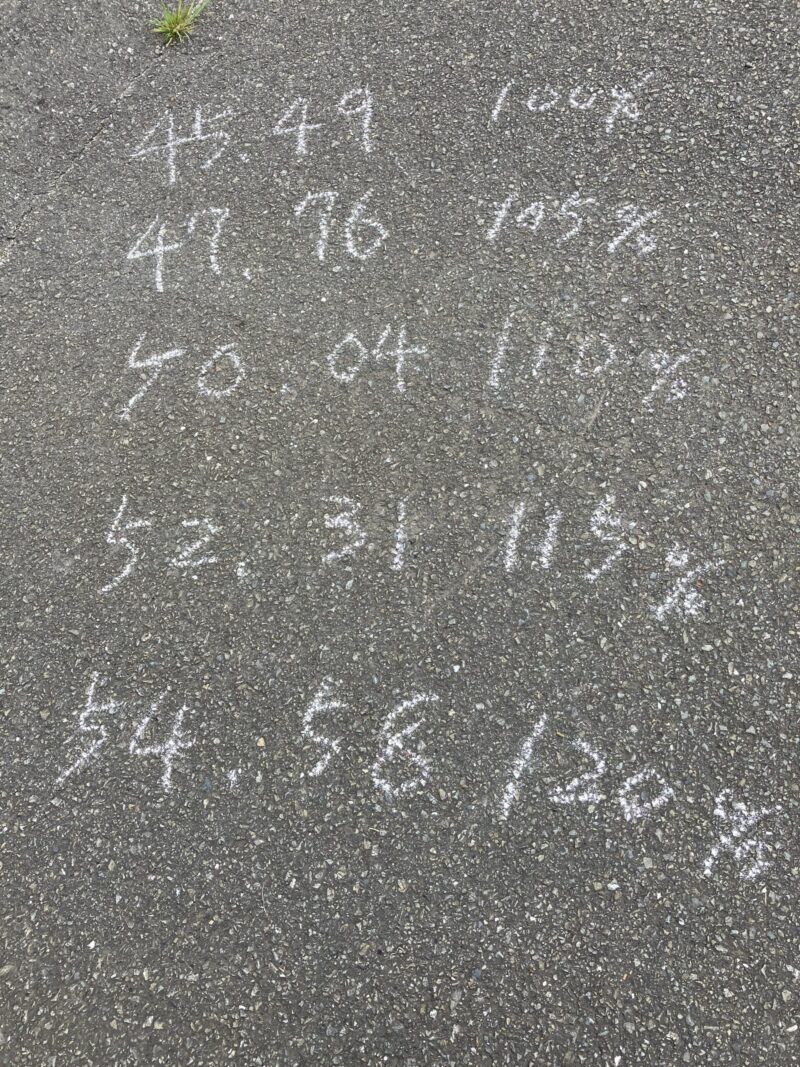 45.49 100%
47.76 105%
50.04 110%
52.31 115%
54.58 120%